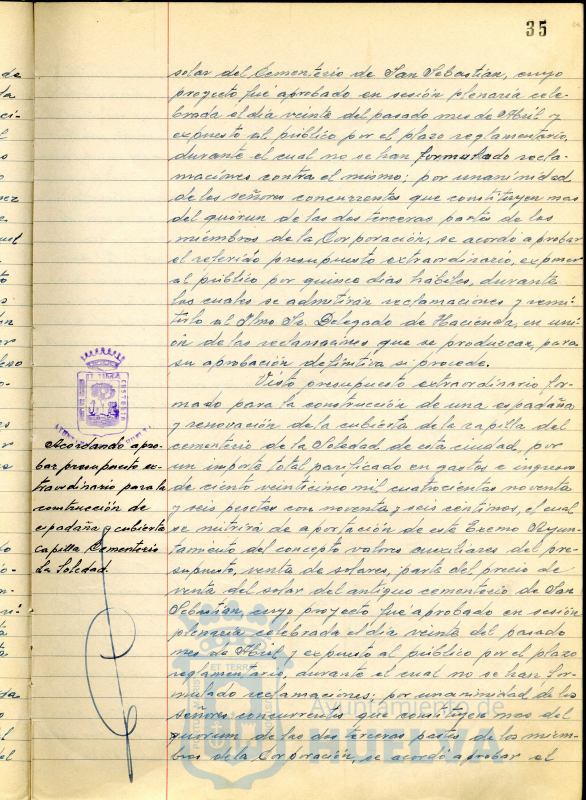 35
solar del Cementerio de San Sebastian, cuyo
proyecto fué aprobado en sesión plenaria cele-
brada el día veinte del pasado mes de Abril y
expuesto al público por el plazo reglamentario,
durante el cual no se han formulado recla-
maciones contra el mismo; por unanimidad
de los señores concurrentes que constituyen mas
del quórun de las dos terceras partes de los
miembros de la Corporación, se acordó aprobar
el referido presupuesto extraordinario, exponer
al público por quince dias hábiles, durante
los cuales se admitirán reclamaciones y remi-
tirlo al Ilmo Sr. Delegado de Hacienda, en uni-
ón de las reclamaciones que se produzcan, para
su aprobación definitiva si procede.
Visto presupuesto extraordinario for-
mado para la construcción de una espadaña
y renovación de la cubierta de la capilla del
cementerio de la Soledad de esta ciudad, por
un importe total parificado en gastos e ingresos
de ciento veinticinco mil cuatrocientas noventa
y seis pesetas con noventa y seis centimos, el cual
se nutrirá de aportación de este Excmo Ayun-
tamiento del concepto valores auxiliares del pre-
supuesto, venta de solares, parte del precio de
venta del solar del antiguo cementerio de San
Sebastian, cuyo proyecto fué aprobado en sesión
plenaria celebrada el dia veinte del pasado
mes de Abril y expuesto al público por el plazo
reglamentario, durante el cual no se han for-
mulado reclamaciones; por unanimidad de los
señores concurrentes que constituyen mas del
quorum de las dos terceras partes de los miem-
bros de la Corporación, se acordó aprobar el
Acordando apro-
bar presupuesto ex-
traordinario para la
construcción de
espadaña y cubierta
capilla Cementerio
La Soledad.
Ayuntamiento de
HUELVA